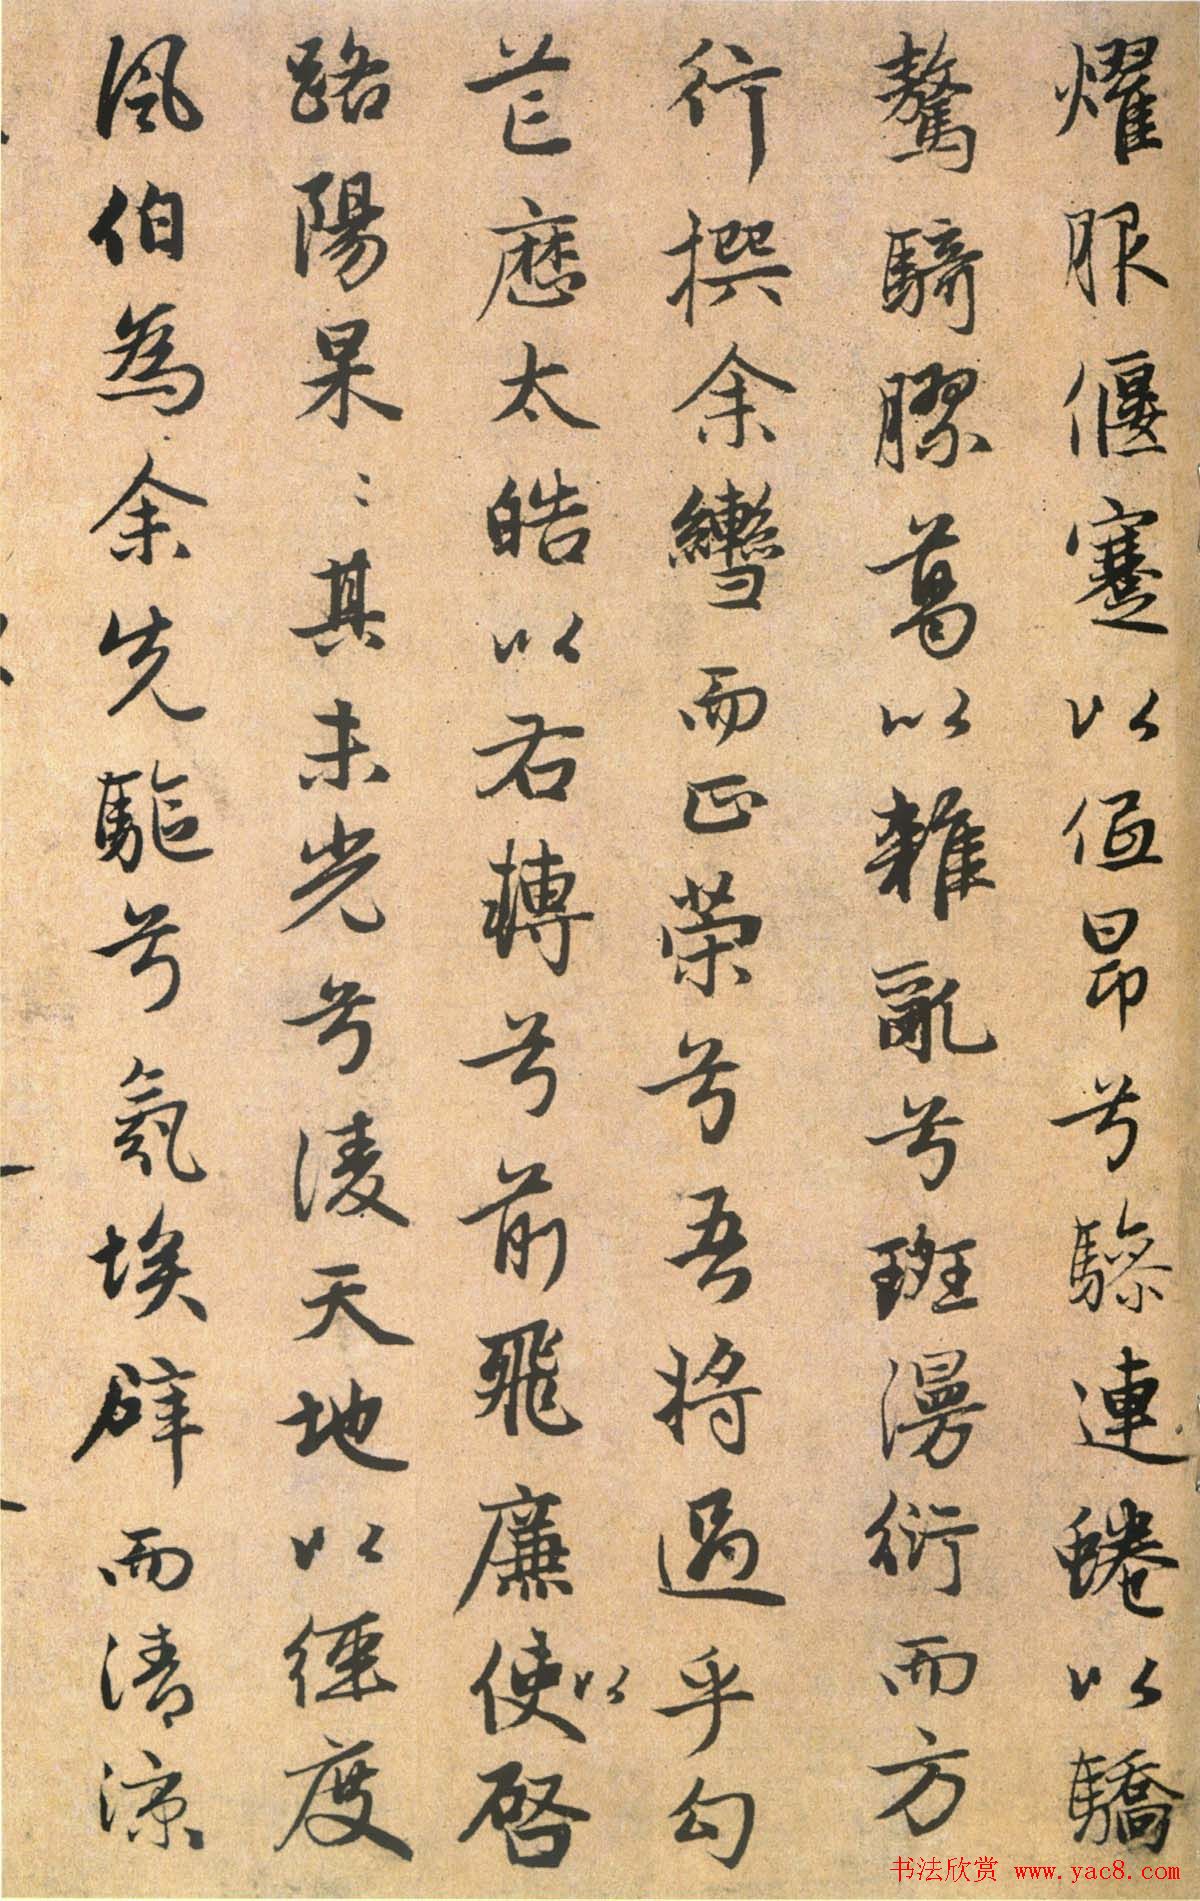 燿服偃蹇以低昂兮驂連蜷以驕
驁騎膠葛以雜亂兮斑漫衍而方
行撰余轡而正策兮吾將過乎勾
芒歷太皓以右轉兮前飛廉使以啓
路陽杲〻其未光兮淩天地以徑度
風伯為余先驅兮氛埃辟而清涼
书法欣赏 www.yac8.com